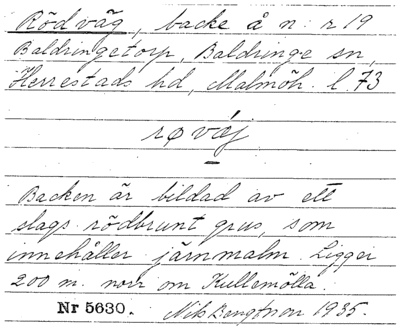 Rödväg, backe å n:r 19
Baldringetorp, Baldringe sn,
Herrestads hd, Malmöh. l. 73
rø väj
Backen är bildad av ett
slags rödbrunt grus, som
innehåller järnmalm. Ligger
200 m. norr om Kullemölla.
Nr 5630. Nils Bengtsson 1935.